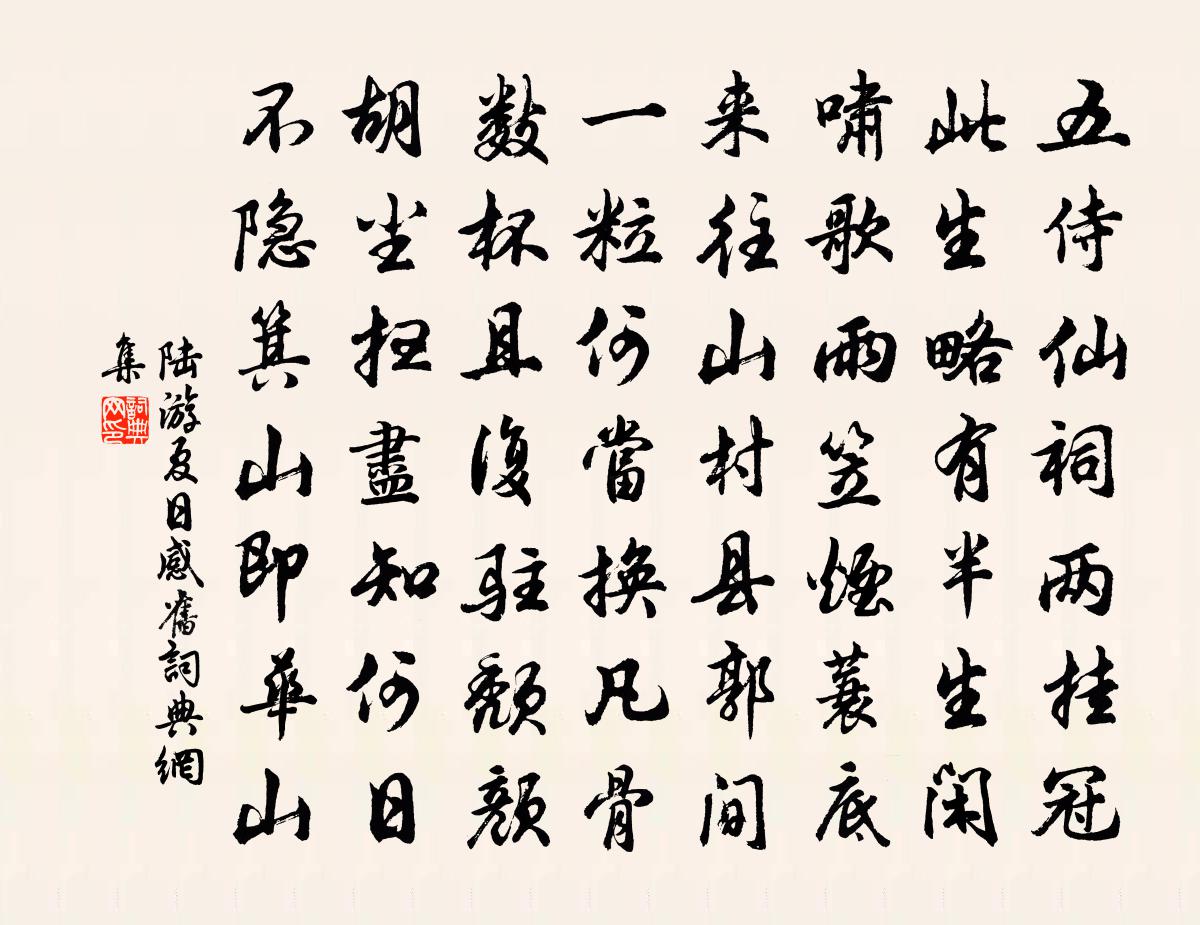 五侍仙祠两挂冠
此生略有半生闲
啸歌雨笠烟蓑底
来往山村县郭间
一粒何當换凡骨
数杯且復驻颓颜
胡尘扫盡知何日
不隐箕山即華山
陆游夏日感舊詞典網
集
詞典网印